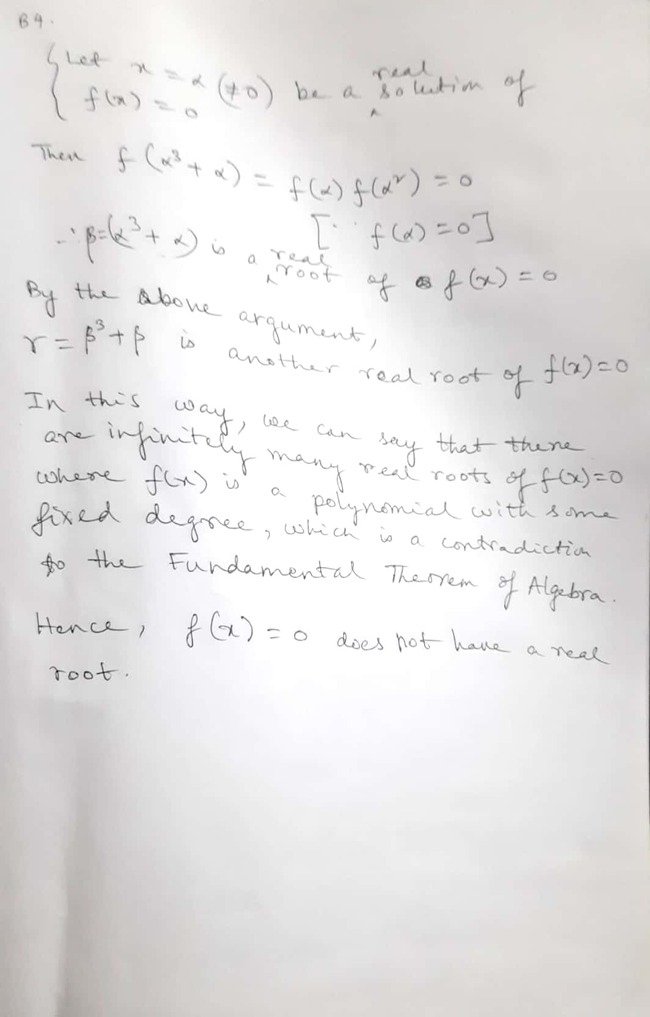 B4.
Let x = α (≠0) be a real solution of
f(x) = 0
Then f(α³ + α) = f(α) f(α²) = 0
[∵ f(α) = 0]
∴ β = (α³ + α) is a real root of f(x) = 0
By the above argument,
γ = β³ + β is another real root of f(x) = 0
In this way, we can say that there
are infinitely many real roots of f(x) = 0
where f(x) is a polynomial with some
fixed degree, which is a contradiction
to the Fundamental Theorem of Algebra.
Hence, f(x) = 0 does not have a real
root.